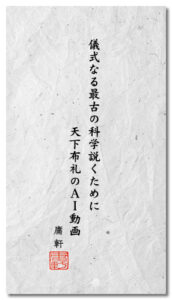 儀式なる最古の科学説くために
天下布礼のAI動画
庸軒